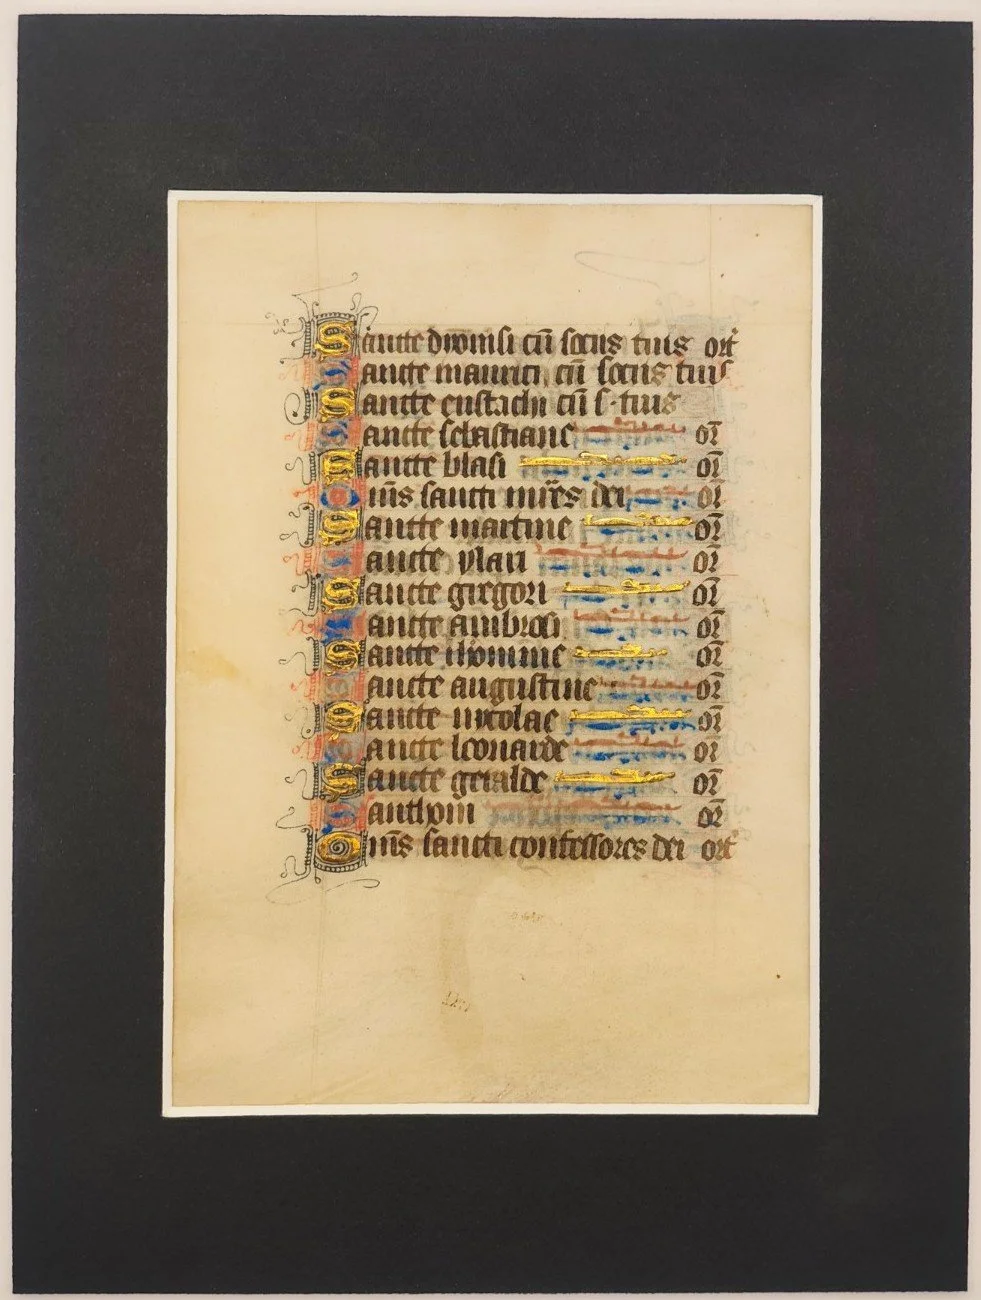 Sancte dionisi cū sociis tuis orͣ
Sancte maurici cū sociis tuis
Sancte eustachi cū s· tuis
Sancte sebastiane or̄
Sancte blasi or̄
Om̄s sancti mr̄es dei or̄
Sancte martine or̄
Sancte ylari or̄
Sancte gregori or̄
Sancte ambrosi or̄
Sancte iheronime or̄
Sancte augustine or̄
Sancte nycolae or̄
Sancte leonarde or̄
Sancte geralde or̄
S anthoni or̄
Om̄s sancti confessores dei orͣ